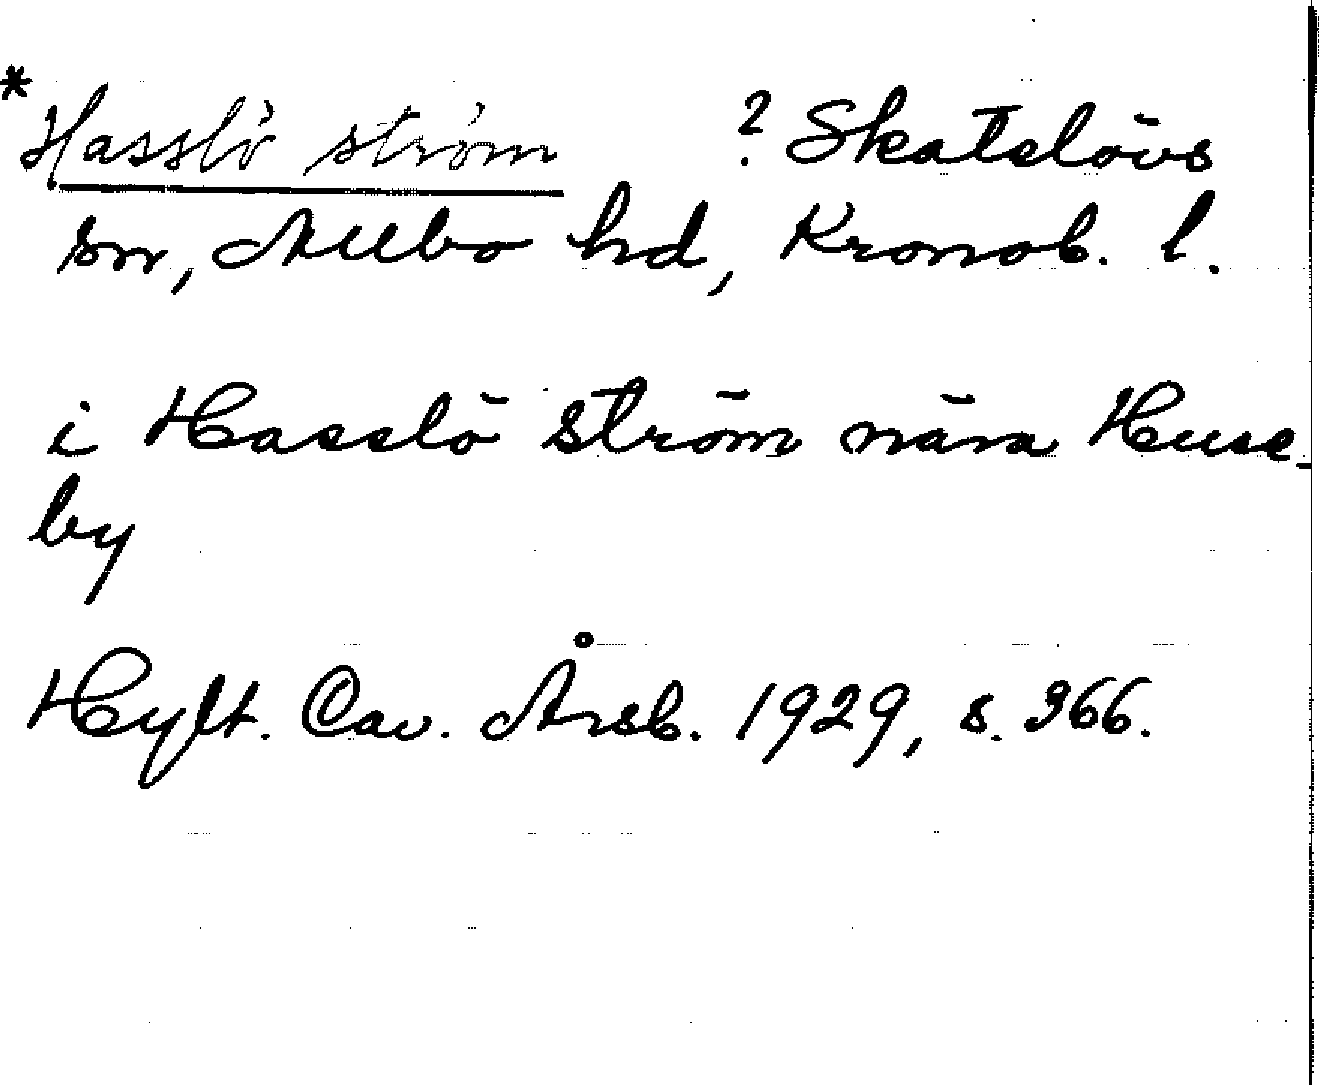 *Hasslö ström ? Skatelövs
sn, Allbo hd, Kronob. l.
i Hasslö ström nära Huse-
by
Hylt. Cav. Årsb. 1929, s. 366.